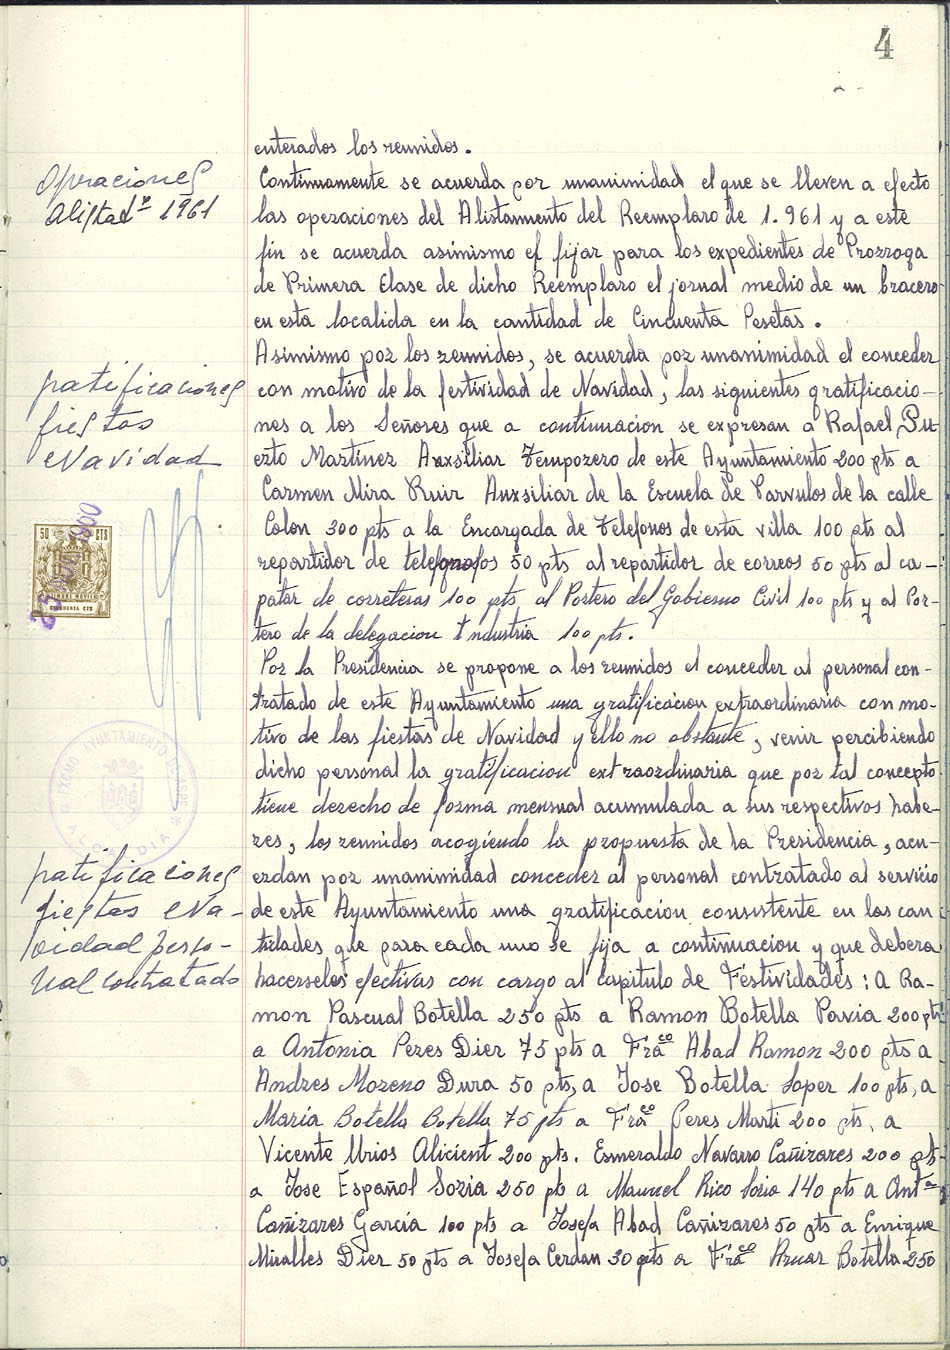 4
enterados los reunidos.
Operaciones
Alistadº 1961
Continuamente se acuerda por unanimidad el que se lleven a efecto
las operaciones del Alistamiento del Reemplazo de 1.961 y a este
fin se acuerda asimismo el fijar para los expedientes de Prorroga
de Primera Clase de dicho Reemplazo el jornal medio de un bracero
en esta localida en la cantidad de Cincuenta Pesetas.
Asimismo por los reunidos, se acuerda por unanimidad el conceder
gratificaciones
fiestas
Navidad
con motivo de la festividad de Navidad, las siguientes gratificacio-
nes a los Señores que a continuacion se expresan a Rafael Pu-
erto Martinez Auxsiliar Temporero de este Ayuntamiento 200 pts a
Carmen Mira Ruiz Auxsiliar de la Escuela de Parvulos de la calle
Colon 300 pts a la Encargada de Telefonos de esta villa 100 pts al
repartidor de telegrafos 50 pts al repartidor de correos 50 pts al ca-
patar de correteras 100 pts al Portero del Gobierno Civil 100 pts y al Por-
tero de la delegacion Industria 100 pts.
50 CTS
Por la Presidencia se propone a los reunidos el conceder al personal con-
tratado de este Ayuntamiento una gratificacion extraordinaria con mo-
tivo de las fiestas de Navidad y ello no obstante, venir percibiendo
dicho personal la gratificacion extraordinaria que por tal concepto
tiene derecho de forma mensual acumulada a sus respectivos habe-
res, los reunidos acogiendo la propuesta de la Presidencia, acu-
erdan por unanimidad conceder al personal contratado al servicio
de este Ayuntamiento una gratificacion consistente en las can
tidades que para cada uno se fija a continuacion y que debera
EXCMO AYUNTAMIENTO DE ASPE
ALCALDIA
gratificaciones
fiestas Na-
vidad perso-
nal contratado
hacerseles efectivas con cargo al capitulo de Festividades: A Ra-
mon Pascual Botella 250 pts a Ramon Botella Pavia 200 pts
a Antonia Peres Dier 75 pts a Fraco Abad Ramon 200 pts a
Andres Moreno Dura 50 pts, a Jose Botella Soper 100 pts, a
Maria Botella Botella 75 pts a Fraco Peres Marti 200 pts, a
Vicente Urios Alicient 200 pts. Esmeraldo Navarro Cañizares 200 pts
a Jose Español Soria 250 pts a Manuel Rico Soria 140 pts a Antª
Cañizares García 100 pts a Josefa Abad Cañizares 50 pts a Enrique
Miralles Dier 50 pts a Josefa Cerdan 30 pts a Fraco Aznar Botella 250